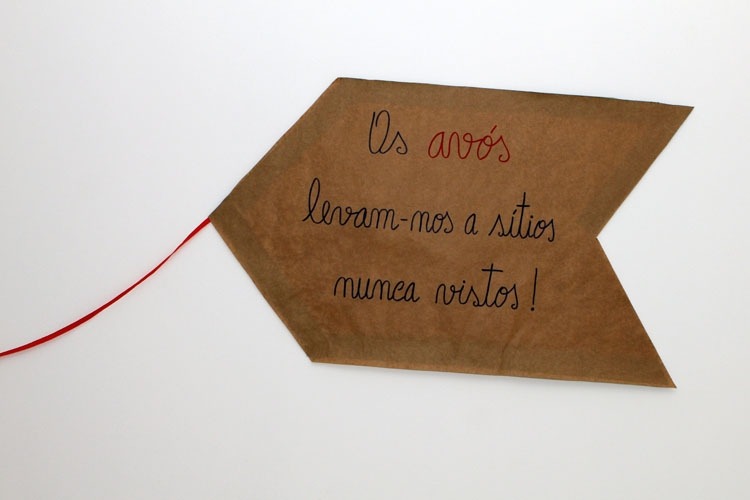 Os avós
levam-nos a sítios
nunca vistos!